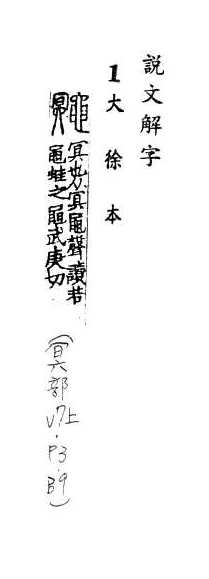 說文解字
1大徐本
鼆 冥也从冥黽聲讀若
黽蛙之黽武庚切
(冥部 V7上.P3.B9)